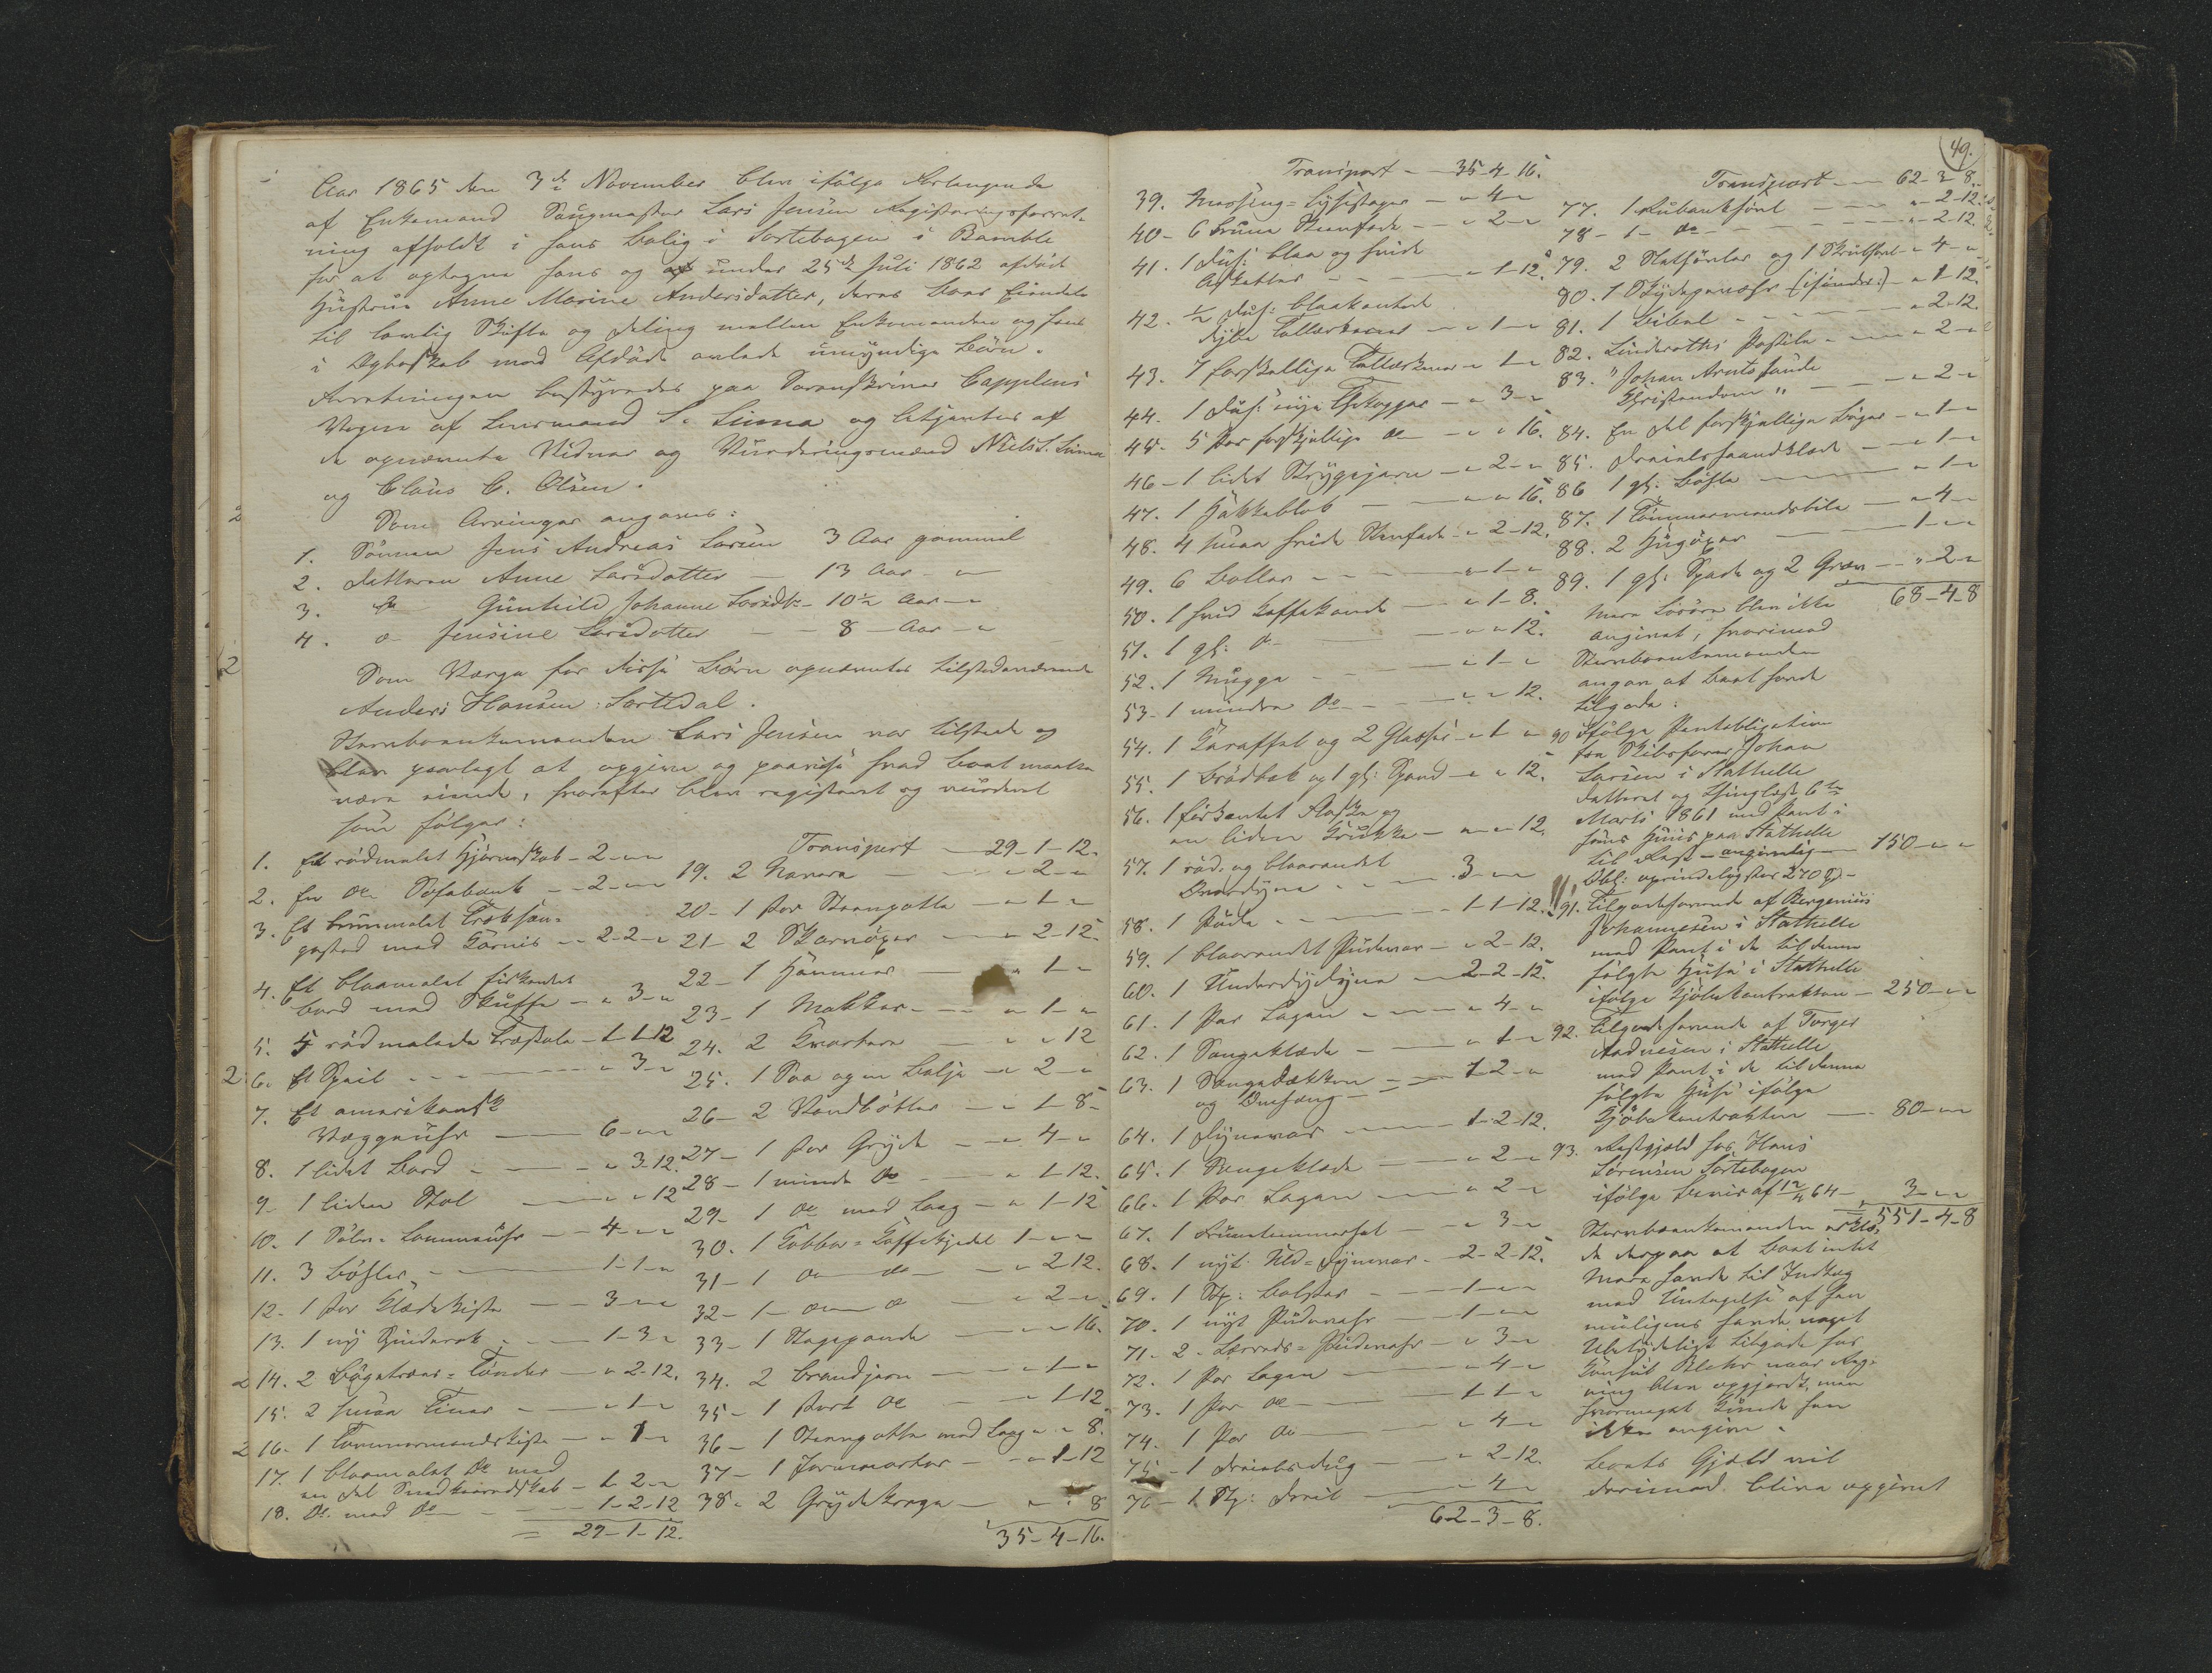 Aar 1865 den 3de November blev ifølge Forlangende
af Enkemand Saugmester Lars Jensen Registreringsforret-
ning afholdt i hans Bolig i Sortebogen i Bamble
for at optegne hans og under 25de Juli 1862 afdøde
Hustrue Anne Marine Andersdatter, deres Boes Eiendele
til lovlig Skifte og Deling mellem Enkemanden og hans
i Ægteskab med Afdøde avlede umyndige Børn.
Forretningen bestyredes paa Sorenskriver Cappelens
Vegne af Lensmand S. Linna og betjentes af
de opnævnte Vidner og Vurderingsmænd Niels S. Linna
og Claus C. Olsen.
Som Arvinger angaves:
1. Sønnen Jens Andreas Larsen 3 Aar gammel
2. Datteren Anne Larsdatter — 13 Aar — "
3. do Gunhild Johanne Larsdtr - 10½ Aar — "
4. do Jensine Larsdatter — 8 — Aar — "
Som Værge for disse Børn opnævntes tilstedeværende
Anders Hansen Sortedal.
Stervboenkemanden Lars Jensen var tilstede og
blev paalagt at opgive og paavise hvad Boet maatte
være eiende, hvorefter blev registreret og vurderet
som følger:
1. Et rødmalet Hjørneskab - 2 - " - "
2. En do Sofabænk - 2 - " - "
3. Et brunmalet Træksen-
gested med Gavnis - 2 - 2 - "
4. Et blaamalet firkantet
bord med Skuffe - " 3 - "
5. 5 rødmalede Træstole - 1 - 1 - 12
6. Et Speil - " 3 - "
7. Et amerikansk
Væggeuhr — 6 - " - "
8. 1 lidet Bord - " 3 - 12.
9. 1 liden Stol — " - " 12
10. 1 Sølv-Lommeuhr — 4 - " - "
11. 3 Bøsler - 1 - 1 - "
12. 1 stor Klædekiste - 3 - " - "
13. 1 ny - 1 - 3 - "
14. 2 Bøgetræes-Tønder - " 2 - 12.
15. 2 smaa Tiner - " 1 - "
16. 1 Tømmermandskiste - " 1 - "
17. 1 blaamalet do med
en Del Snedkerredskab - 1 - 2 - "
18. do med do - 1 - 2 - 12
= 29 - 1 - 12.
Transport — 29 - 1 - 12.
19. 2 Navere - " 2 - "
20 - 1 stor Steengryte - " 1 - "
21 - 2 Skarvøxer - " 2 - 12.
22 - 1 Hammer - " 1 - "
23 - 1 - " 1 - "
24. 2 - " " 12
25. 1 Saa og en Balje - " 2 - "
26 - 2 Vandbøtter - " 1 - 8 -
27 - 1 stor Gryde - " 4 - "
28 - 1 mindre do - " 1 - 12.
29 - 1 do med Laag - " 1 - 12
30. 1 Kobber-Kaffekjedel 1 - " - "
31 - 1 do do - " 2 - 12.
32 - 1 - do do - " 2 - "
33 - 1 Stegepande - " - " 16.
34. 2 Brandjern - " 1 - "
35 - 1 stort do - " 1 - 12
36 - 1 med Laag - " " 8.
37 - 1 Jernmorter - " 1 - 12
38. 2 Grydekroge - " " 8
35 - 4 - 16.
49.
Transport — 35 - 4 - 16.
39. Messing-Lysestager - " 4 - "
40 - 6 brune Steenfade - " 2 - "
41. 1 Dus: blaa og hvide
Asietter - " 1 - 12.
42. ½ Dus: blaakantede
dybe Tallerkener - " 1 - "
43. 7 forskjellige Tallerkener - " 1 - "
44. 1 Dus: nye Thekopper - " 3 - "
45. 5 Par forskjellige do - " " 16.
46 - 1 lidet Strygejern - " 2 - "
47. 1 Hakkeblok - " " 16.
48. 4 smaa hvide Steenfade - " 2 - 12.
49. 6 Boller - " 1 - "
50. 1 hvid Kaffekande - " 1 - 8.
51. 1 gl: do - " " 12.
52. 1 Mugge - " 1 - "
53 - 1 mindre do - " " 12.
54. 1 Karaffel og 2 Glasser - " 1 - "
55. 1 Brødbak og 1 gl: Spand - " " 12.
56. 1 firkantet Flaske og
en liden Krukke - " " 12.
57. 1 rød- og blaarandet
Overdyne - 3 - " - "
58. 1 Pude - 1 - 1 - 12.
59. 1 blaarandet Pudevar - " 2 - 12.
60. 1 Underdyne - 2 - 2 - 12.
61. 1 Par Lagen - " 4 - "
62. 1 Sengeklæde - " 1 - "
63. 1 Sengedækken
og Omhæng - 1 - 2 - "
64. 1 Dynevar - 1 - 2 - 12.
65. 1 Sengeklæde - " 2 - "
66. 1 Par Lagen - " 2 - "
67. 1 - " 3 - "
68. 1 nyt Uld-Dynevar - 2 - 2 - 12.
69. 1 Stk: Bolster - 1 - " - "
70. 1 nyt Pudevahr - 1 - " - "
71 - 2 Lærreds-Pudevahr - " 3 - "
72. 1 Par Lagen - " 4 - "
73. 1 Par do - 1 - 1 - "
74. 1 Par do - " 4 - "
75 - 1 Dreielsdug - " 2 - 12.
76 - 1 Stk: Dreil - " 4 - "
62 - 3 - 8.
Transport — 62 - 3 - 8.
77. 1 Rubankhøvl - " 2 - 12.
78 - 1 - do - " 2 - 12.
79. 2 Slethøvler og 1 Skrubhøvl - " 4 - "
80. 1 Skydegevæhr (isønder:) - " 1 - 12.
81. 1 Bibel - " 2 - 12.
82. Linderoths Postile - " 2 - "
83. "Johan Arnts sande
Christendom" - " 2 - "
84. En Del forskjellige Bøger - " 1 - "
85. Dreielshaandklæde - " 1 - "
86 1 gl: Bøsle - " 1 - "
87. 1 Tømmermandsbile - " 4 - "
88. 2 Hugøxer - 1 - " - "
89. 1 gl: Spade og 2 Græv - " 2 - "
68 - 4 - 8
Mere Løsøre blev ikke
angivet, hvorimod
Stervboenkemanden
angav at Boet havde
tilgode:
90 Ifølge Panteobligation
fra Skibsfører Johan
Larsen i Stathelle
dateret og thinglæst 6te
Marts 1861 med Pant i
hans Huus paa Stathelle
til Rest - angivelig — 150 - " - "
Obl: oprindelig stor 270 Spd -
91. Tilgodehavende af Bergenius
Johannesen i Stathelle
med Pant i de til denne
solgte Huse i Stathelle
ifølge Kjøbekontrakten — 250 - " - "
92. Tilgodehavende af Torger
Andresen i Stathelle
med Pant i de til denne
solgte Huse ifølge
Kjøbekontrakten — 80 - " - "
93. Restgjæld hos Hans
Sørensen Sortebogen
ifølge Beviis af 12/4 64 — 3 - " - "
= 551 - 4 - 8
Stervboenkemanden erklære-
de derpaa at Boet intet
mere havde til Indtægt
med Undtagelse af han
muligens havde noget
Ubetydeligt tilgode hos
Konsul Blehr naar Reg-
ning blev opgjort, men
hvormeget kunde han
ikke angive.
Boets Gjæld vil
derimod blive opgivet